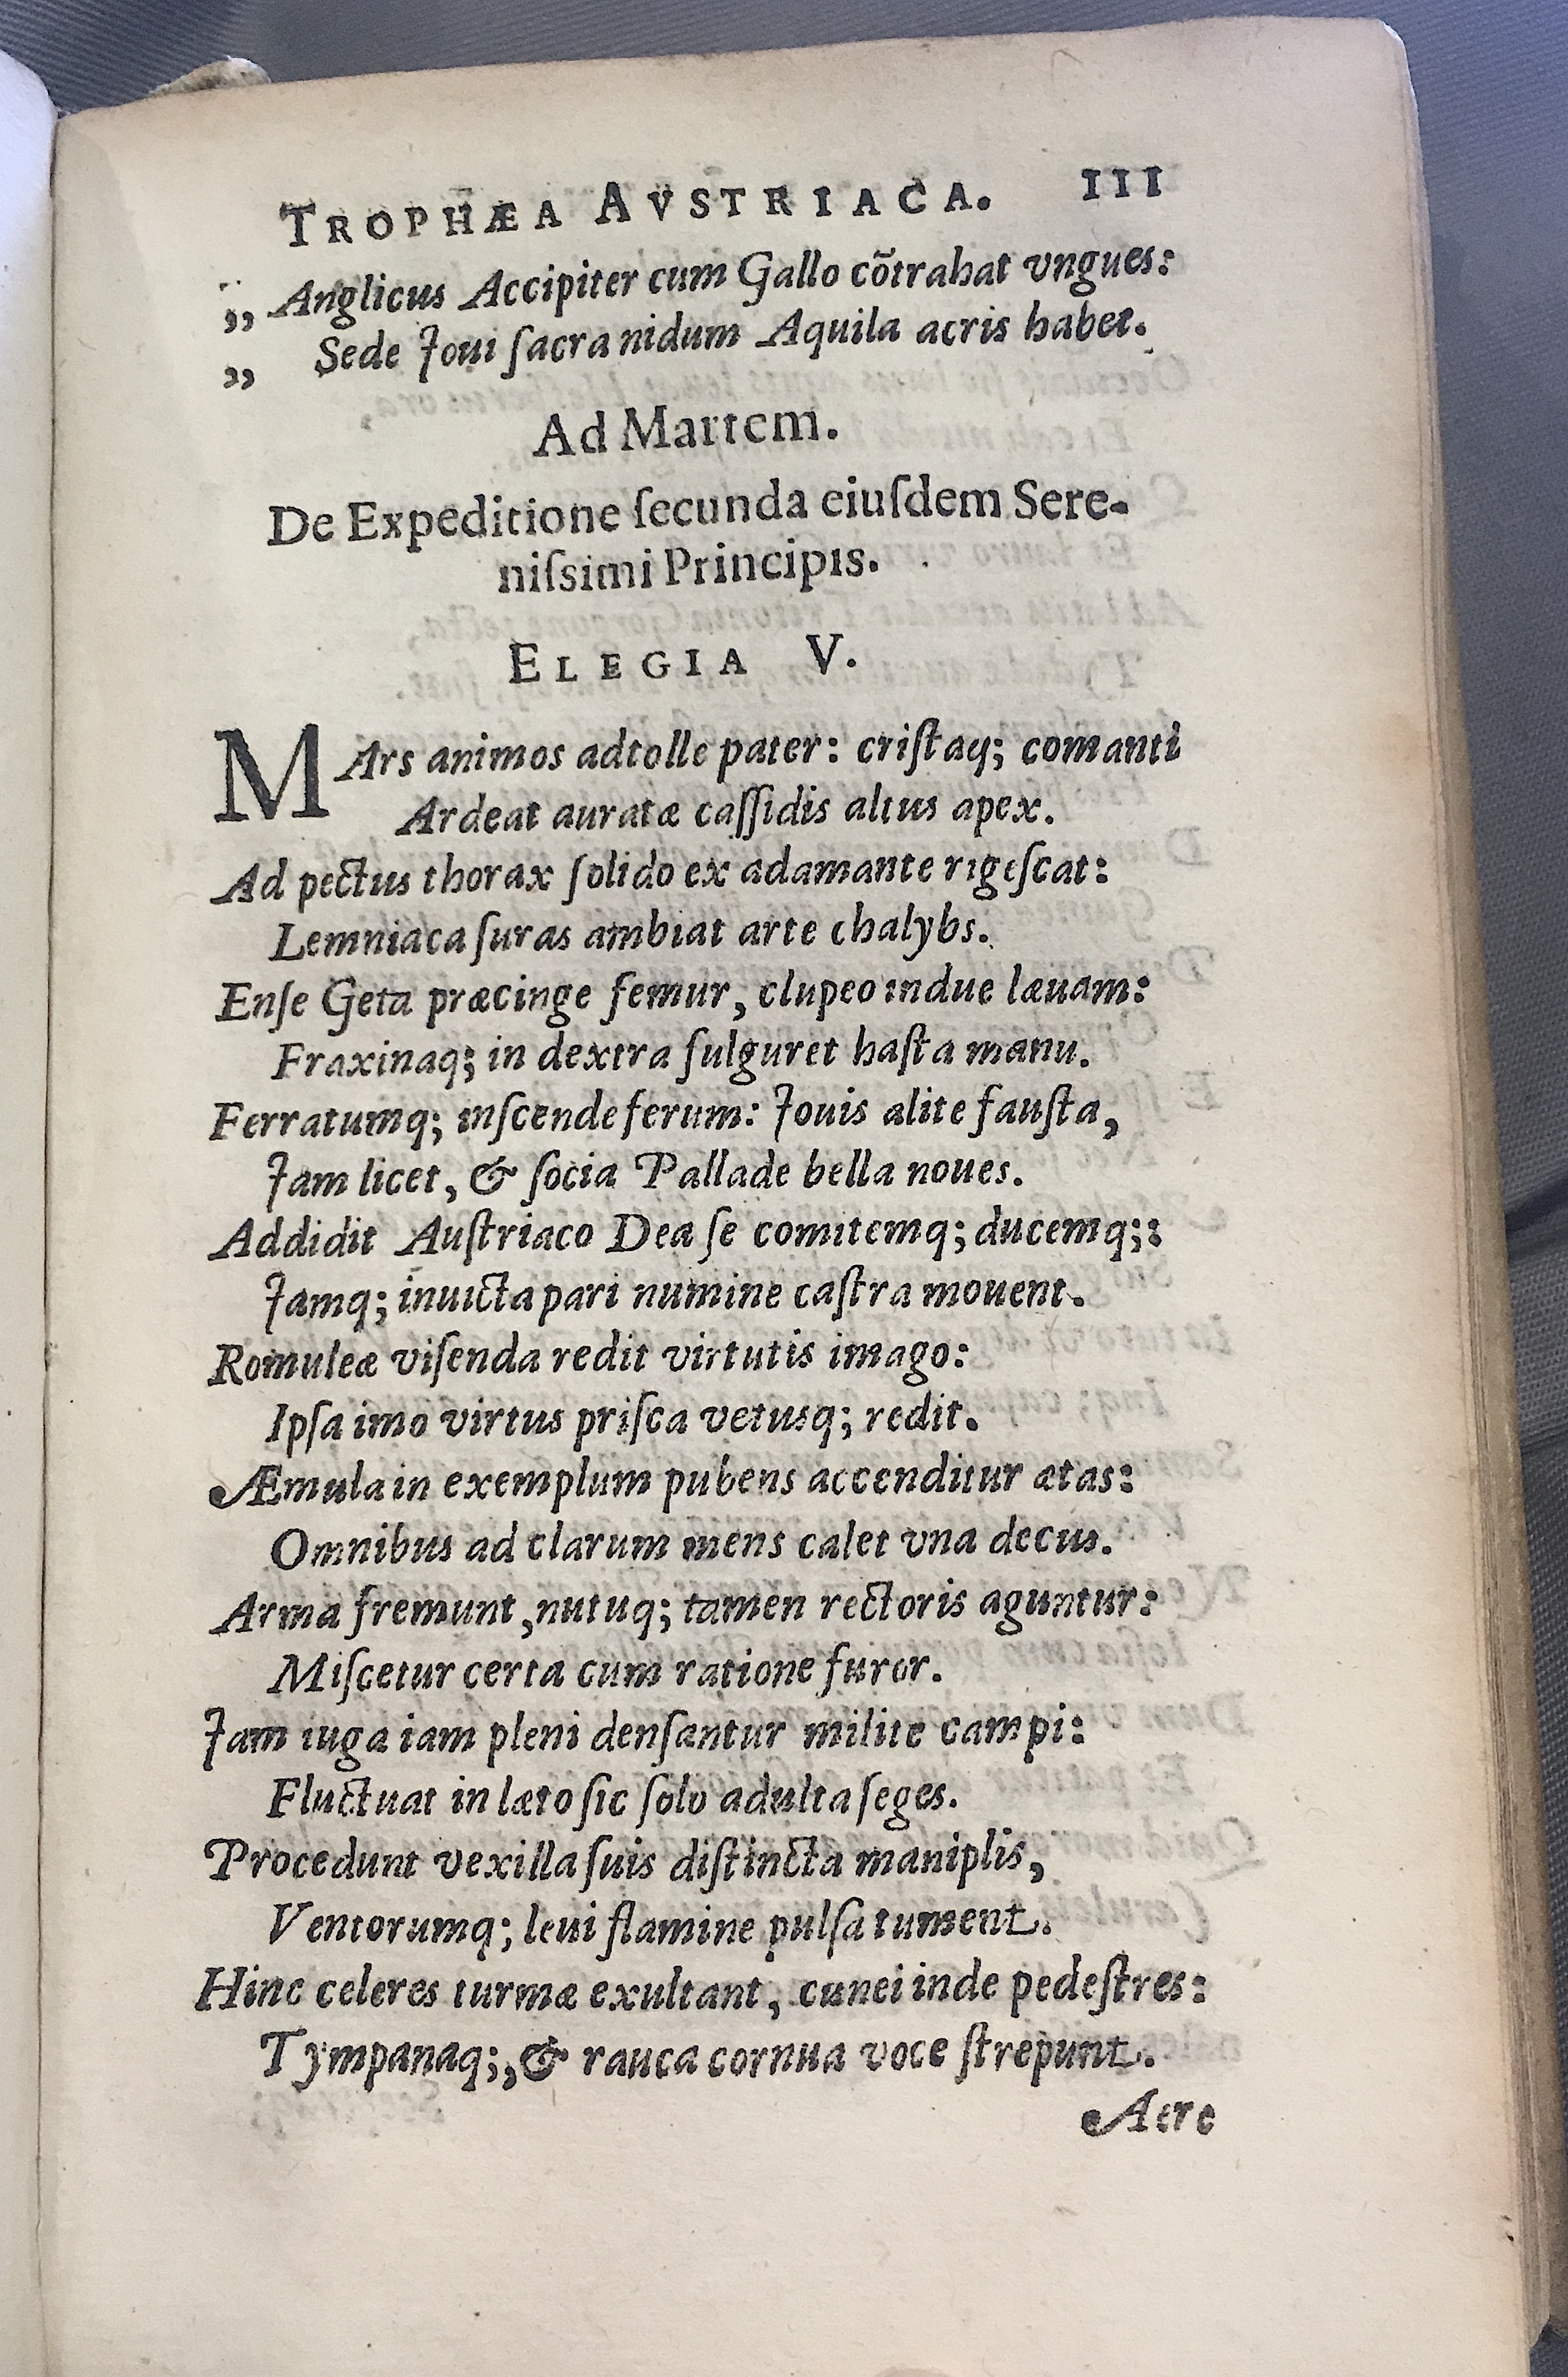 TROPHÆA AVSTRIACA. III
„ Anglicus Accipiter cum Gallo cõtrahat vngues:
„ Sede Joui ſacra nidum Aquila acris habet.
Ad Martem.
De Expeditione ſecunda eiuſdem Sere-
niſsimi Principis.
ELEGIA V.
MArs animos adtolle pater: criſtaq; comanti
Ardeat auratæ caſſidis altus apex.
Ad pectus thorax ſolido ex adamante rigeſcat:
Lemniaca ſuras ambiat arte chalybs.
Enſe Geta præcinge femur, clupeo indue læuam:
Fraxinaq; in dextra fulguret haſta manu.
Ferratumq; inſcende ferum: Jouis alite fauſta,
Jam licet, & ſocia Pallade bella noues.
Addidit Auſtriaco Dea ſe comitemq; ducemq;:
Jamq; inuicta pari numine caſtra mouent.
Romuleæ viſenda redit virtutis imago:
Ipſa imo virtus priſca vetusq; redit.
Æmula in exemplum pubens accenditur ætas:
Omnibus ad clarum mens calet vna decus.
Arma fremunt, nutuq; tamen rectoris aguntur:
Miſcetur certa cum ratione furor.
Jam iuga iam pleni denſantur milite campi:
Fluctuat in læto ſic ſolo adulta ſeges.
Procedunt vexilla ſuis diſtincta maniplis,
Ventorumq; leui flamine pulſa tument.
Hinc celeres turmæ exultant, cunei inde pedeſtres:
Tympanaq;, & rauca cornua voce ſtrepunt.
Aere